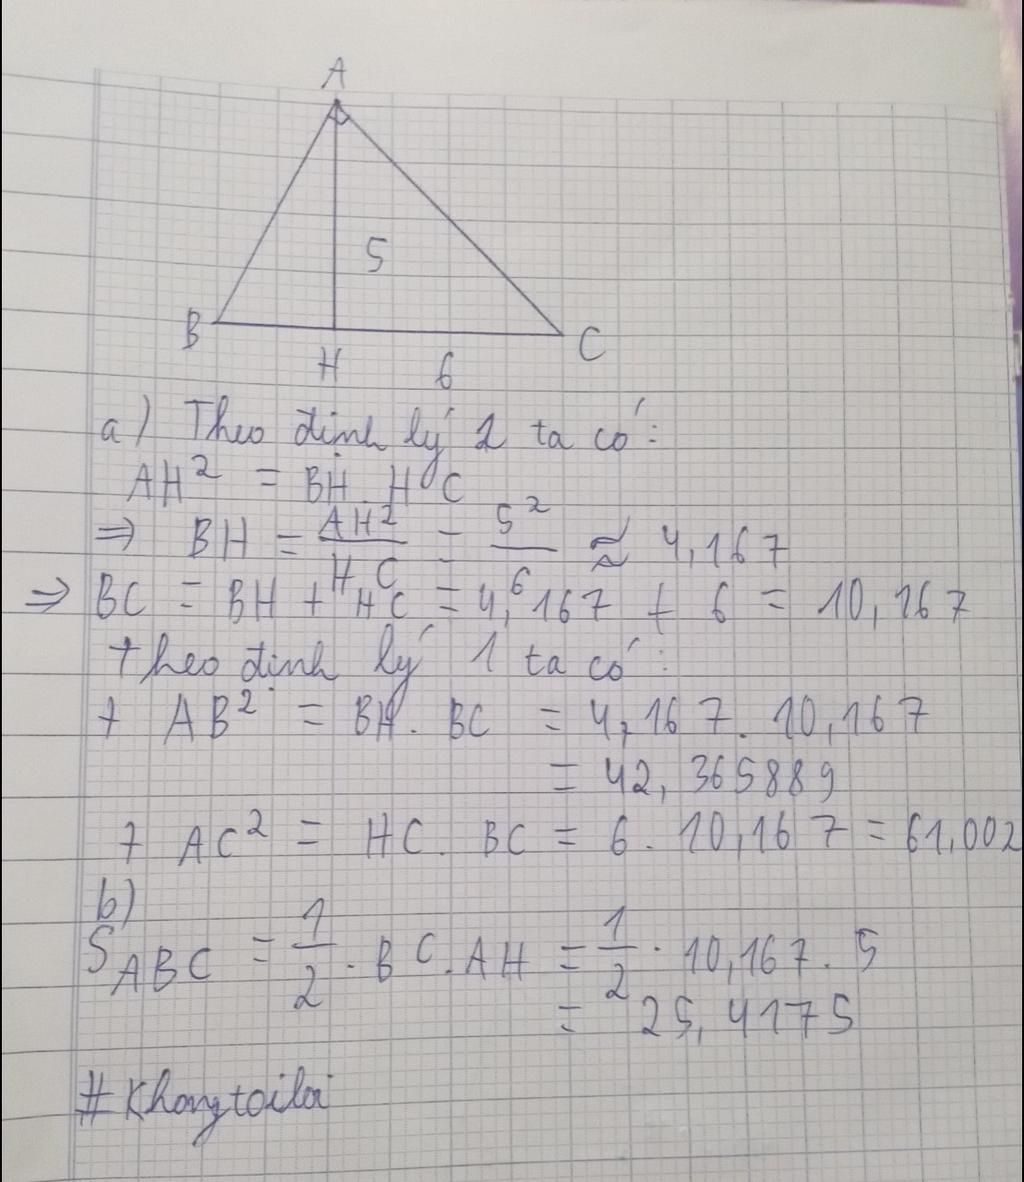 A
5
B
C
H
6
a) Theo định lý 2 ta có:
AH² = BH.HC
⇒ BH = AH²/HC = 5²/6 ≈ 4,167
⇒ BC = BH + HC = 4,167 + 6 = 10,167
theo định lý 1 ta có:
+ AB² = BH. BC = 4,167. 10,167
= 42,365889
+ AC² = HC. BC = 6. 10,167 = 61,002
b)
S ABC = 1/2 . BC.AH = 1/2 . 10,167. 5
= 25,4175